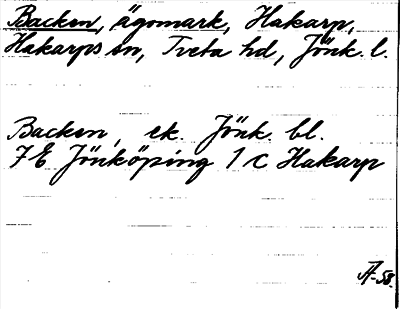 Backen, ägomark, Hakarp,
Hakarps sn, Tveta hd, Jönk. l.
Backen, ek. Jönk. bl.
7 E Jönköping 1 c Hakarp
ÅF-58.